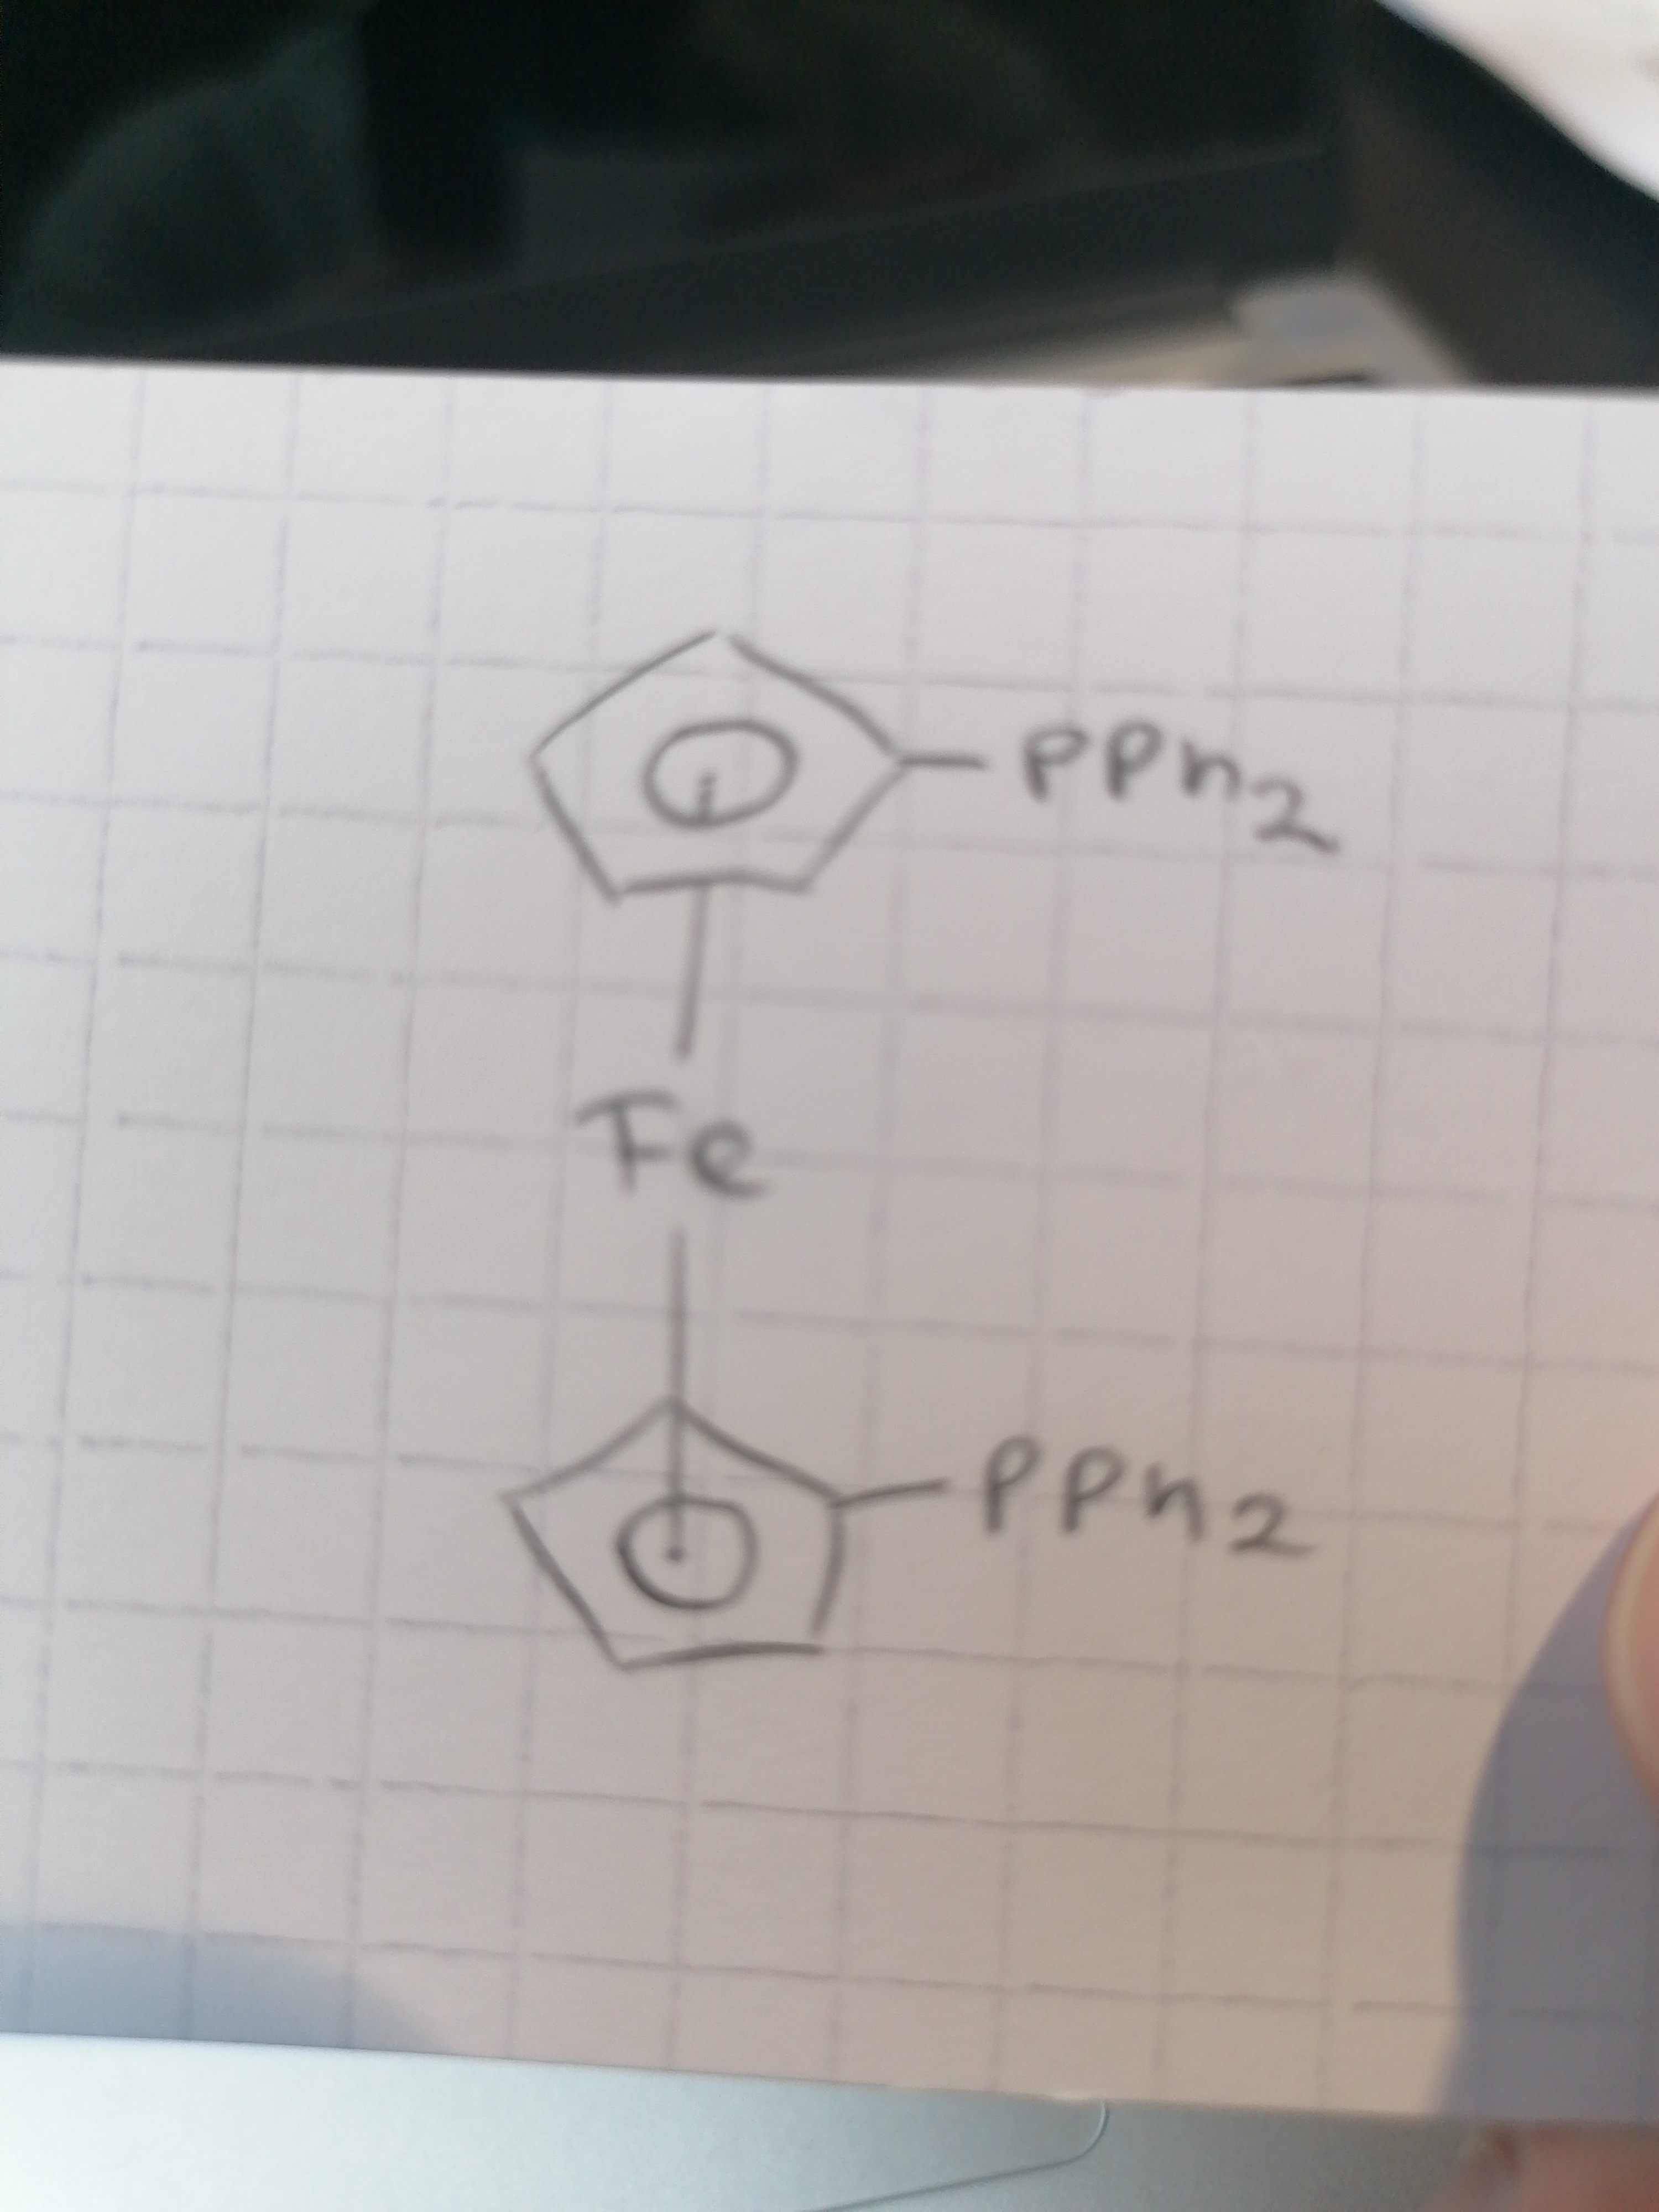 PPh2
Fe
PPh2